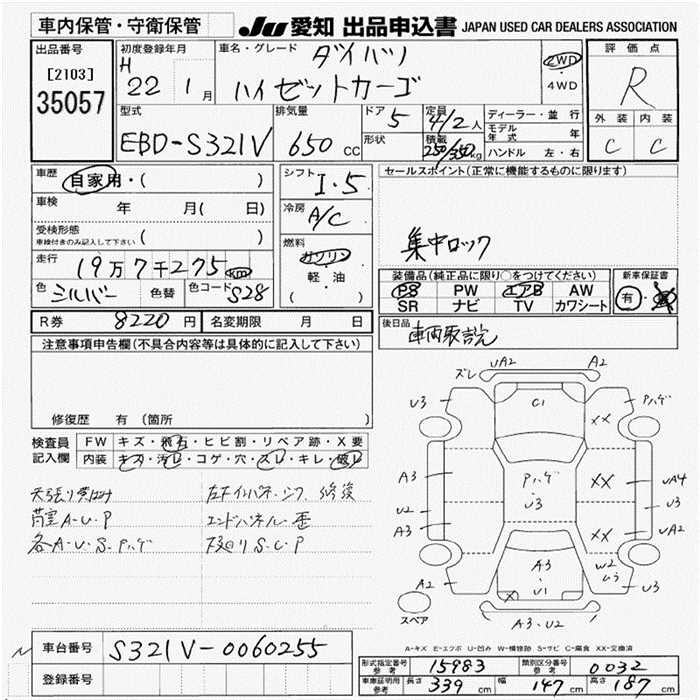 車内保管・守衛保管
JU 愛知 出品申込書 JAPAN USED CAR DEALERS ASSOCIATION
出品番号
[2103]
35057
初度登録年月
H 22 1月
車名・グレード
ダイハツ
ハイゼットカーゴ
2WD
・
4WD
評価点
R
外装 内装
C C
型式
EBD-S321V
排気量
650 cc
ドア
5
形状
定員
4/2人
積載
250/350kg
ディーラー・並行
モデル年式 年
ハンドル 左・右
車歴
自家用・( )
車検
年 月( 日)
受検形態
車検付きのみ記入して下さい ( )
走行
19万7千275km
色 シルバー 色替 色コード S28
シフト
I・5
冷房
A/C
燃料
ガソリン
・
軽・油
( )
セールスポイント(正常に機能するものに限ります)
集中ロック
装備品(純正品に限り○をつけてください)
PS PW エアB AW
SR ナビ TV カワシート
新車保証書
有・無
R券 8220円 名変期限 月 日
後日品
車両取説
注意事項申告欄(不具合内容等は具体的に記入して下さい)
修復歴 有(箇所
検査員記入欄
FW キズ・飛石・ヒビ割・リペア跡・X要
内装 キズ・汚レ・コゲ・穴・スレ・キレ・破レ
荷室A-U-P
各A-U-S-Pハゲ
エンドパネル歪
下廻りS-C-P
ズレ UA2 A2
U3 C1 Pハゲ
XX
A3 Pハゲ XX UA4
U2 ・U3 U3
A3 XX UA2
A2 A3 W2
・U1 X U3 U3
A3・U2
スペア
A-キズ E-エクボ U-凹み W-補修跡 S-サビ C-腐食 XX-交換済
車台番号 S321V-0060255
登録番号
形式指定番号 参考 15983 類別区分番号 参考 0032
車庫証明用 参考 長さ 339cm 幅 147cm 高さ 187cm